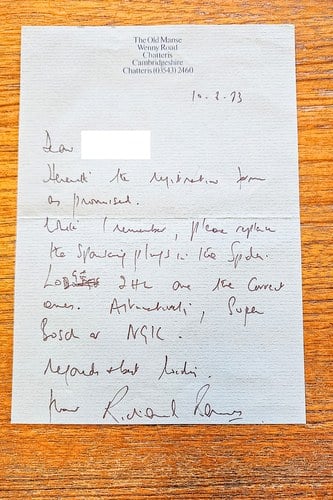 The Old Manse
Wenny Road
Chatteris
Cambridgeshire
Chatteris (03543) 2460
Dear
Herewith the registration form
as promised.
While I remember, please replace
the sparking plugs in the Spider.
2HL are the correct
ones. Alternatively, Super
Bosch or NGK.
Regards & best wishes.
Richard